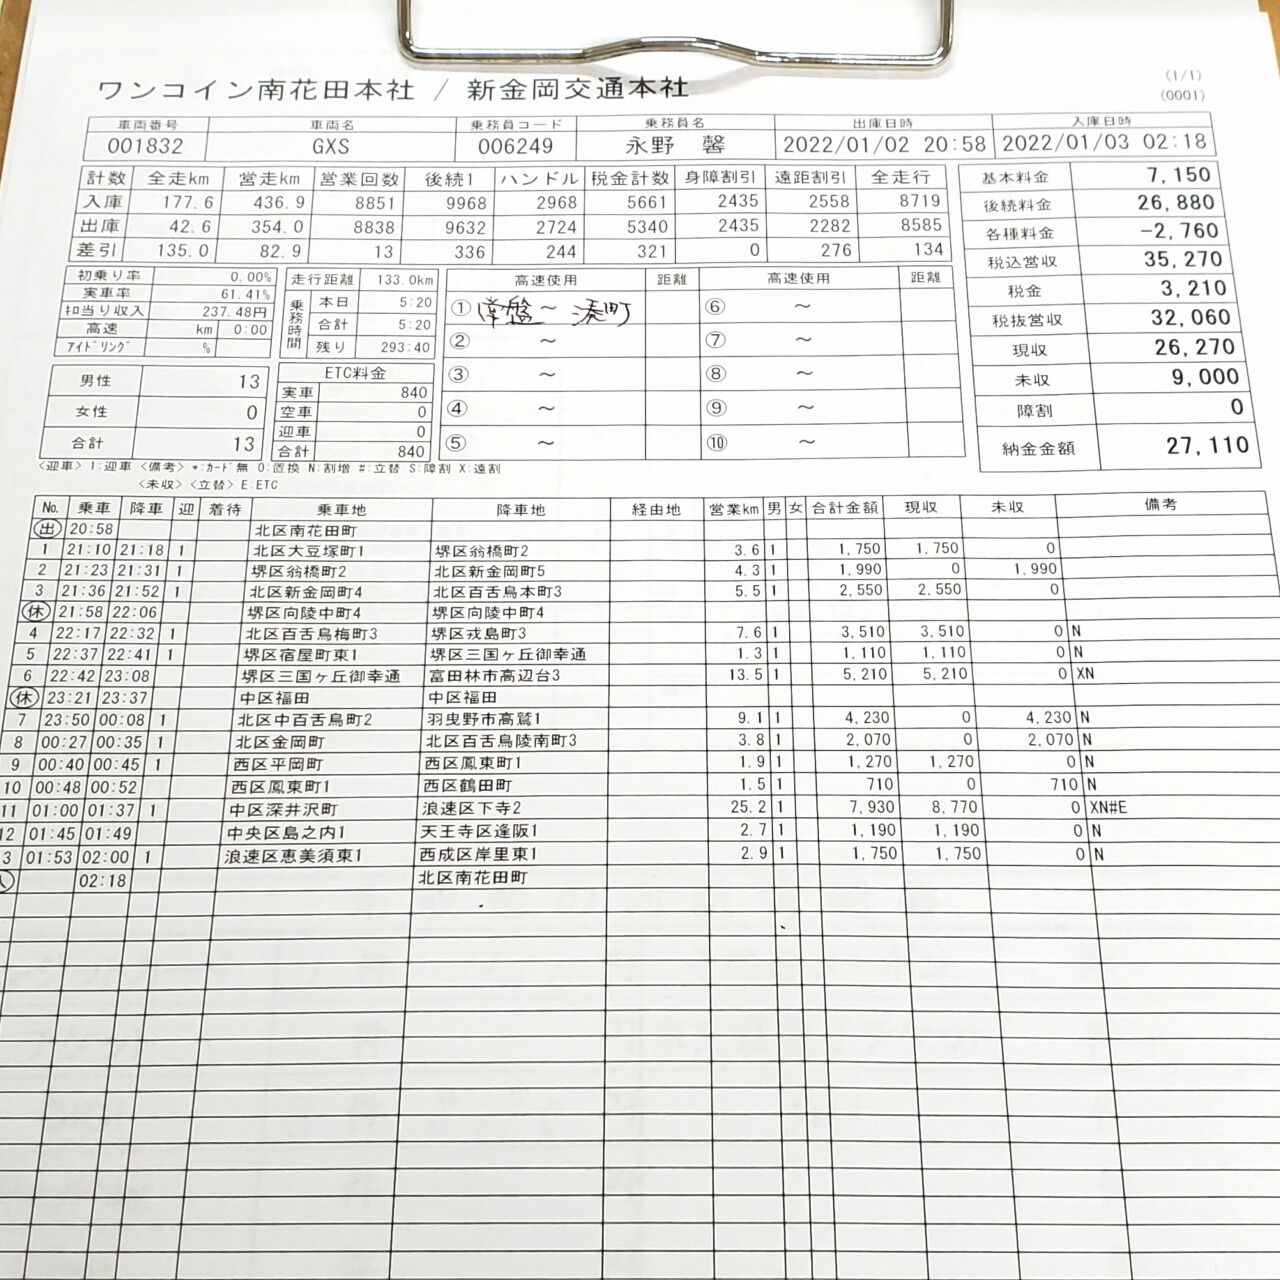 ワンコイン南花田本社 / 新金岡交通本社
(1/1)
(0001)
車両番号 車両名 乗務員コード 乗務員名 出庫日時 入庫日時
001832 GXS 006249 永野 馨 2022/01/02 20:58 2022/01/03 02:18
計数 全走km 営走km 営業回数 後続1 ハンドル 税金計数 身障割引 遠距割引 全走行
入庫 177.6 436.9 8851 9968 2968 5661 2435 2558 8719
出庫 42.6 354.0 8838 9632 2724 5340 2435 2282 8585
差引 135.0 82.9 13 336 244 321 0 276 134
基本料金 7,150
後続料金 26,880
各種料金 -2,760
税込営収 35,270
税金 3,210
税抜営収 32,060
現収 26,270
未収 9,000
障割 0
納金金額 27,110
初乗り率 0.00%
実車率 61.41%
キロ当り収入 237.48円
高速 km 0:00
アイドリング %
走行距離 133.0km
乗務時間
本日 5:20
合計 5:20
残り 293:40
高速使用 距離 高速使用 距離
① 常盤 ~ 湊町 ⑥ ~
② ~ ⑦ ~
③ ~ ⑧ ~
④ ~ ⑨ ~
⑤ ~ ⑩ ~
男性 13
女性 0
合計 13
ETC料金
実車 840
空車 0
迎車 0
合計 840
<迎車> 1:迎車 <備考> *:カード無 O:置換 N:割増 #:立替 S:障割 X:遠割
<未収> <立替> E:ETC
No. 乗車 降車 迎 着待 乗車地 降車地 経由地 営業km 男 女 合計金額 現収 未収 備考
出 20:58 北区南花田町
1 21:10 21:18 1 北区大豆塚町1 堺区翁橋町2 3.6 1 1,750 1,750 0
2 21:23 21:31 1 堺区翁橋町2 北区新金岡町5 4.3 1 1,990 0 1,990
3 21:36 21:52 1 北区新金岡町4 北区百舌鳥本町3 5.5 1 2,550 2,550 0
休 21:58 22:06 堺区向陵中町4 堺区向陵中町4
4 22:17 22:32 1 北区百舌鳥梅町3 堺区戎島町3 7.6 1 3,510 3,510 0 N
5 22:37 22:41 1 堺区宿屋町東1 堺区三国ヶ丘御幸通 1.3 1 1,110 1,110 0 N
6 22:42 23:08 堺区三国ヶ丘御幸通 富田林市高辺台3 13.5 1 5,210 5,210 0 XN
休 23:21 23:37 中区福田 中区福田
7 23:50 00:08 1 北区中百舌鳥町2 羽曳野市高鷲1 9.1 1 4,230 0 4,230 N
8 00:27 00:35 1 北区金岡町 北区百舌鳥陵南町3 3.8 1 2,070 0 2,070 N
9 00:40 00:45 1 西区平岡町 西区鳳東町1 1.9 1 1,270 1,270 0 N
10 00:48 00:52 西区鳳東町1 西区鶴田町 1.5 1 710 0 710 N
11 01:00 01:37 1 中区深井沢町 浪速区下寺2 25.2 1 7,930 8,770 0 XN#E
12 01:45 01:49 中央区島之内1 天王寺区逢阪1 2.7 1 1,190 1,190 0 N
3 01:53 02:00 1 浪速区恵美須東1 西成区岸里東1 2.9 1 1,750 1,750 0 N
入 02:18 北区南花田町